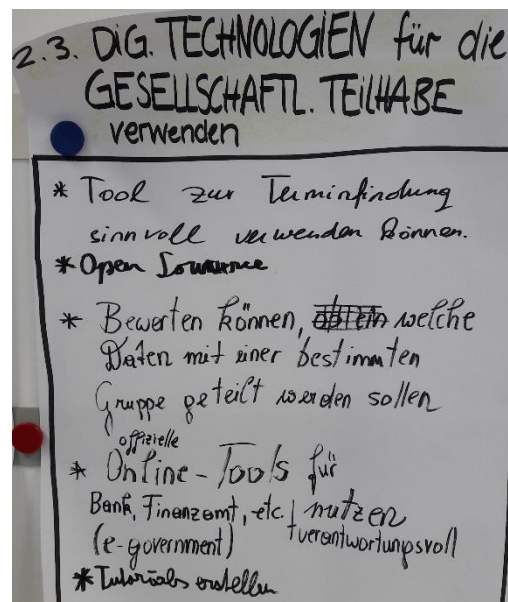 2.3. DiG. TECHNOLOGiEN für die
GESELLSCHAFTL. TEiLHABE
verwenden
* Tool zur Terminfindung
sinnvoll verwenden können.
* Open
* Bewerten können, welche
Daten mit einer bestimmten
Gruppe geteilt werden sollen
offizielle
* Online-Tools für
Bank, Finanzamt, etc. | nutzen
(e-government) + verantwortungsvoll
* Tutorials erstellen